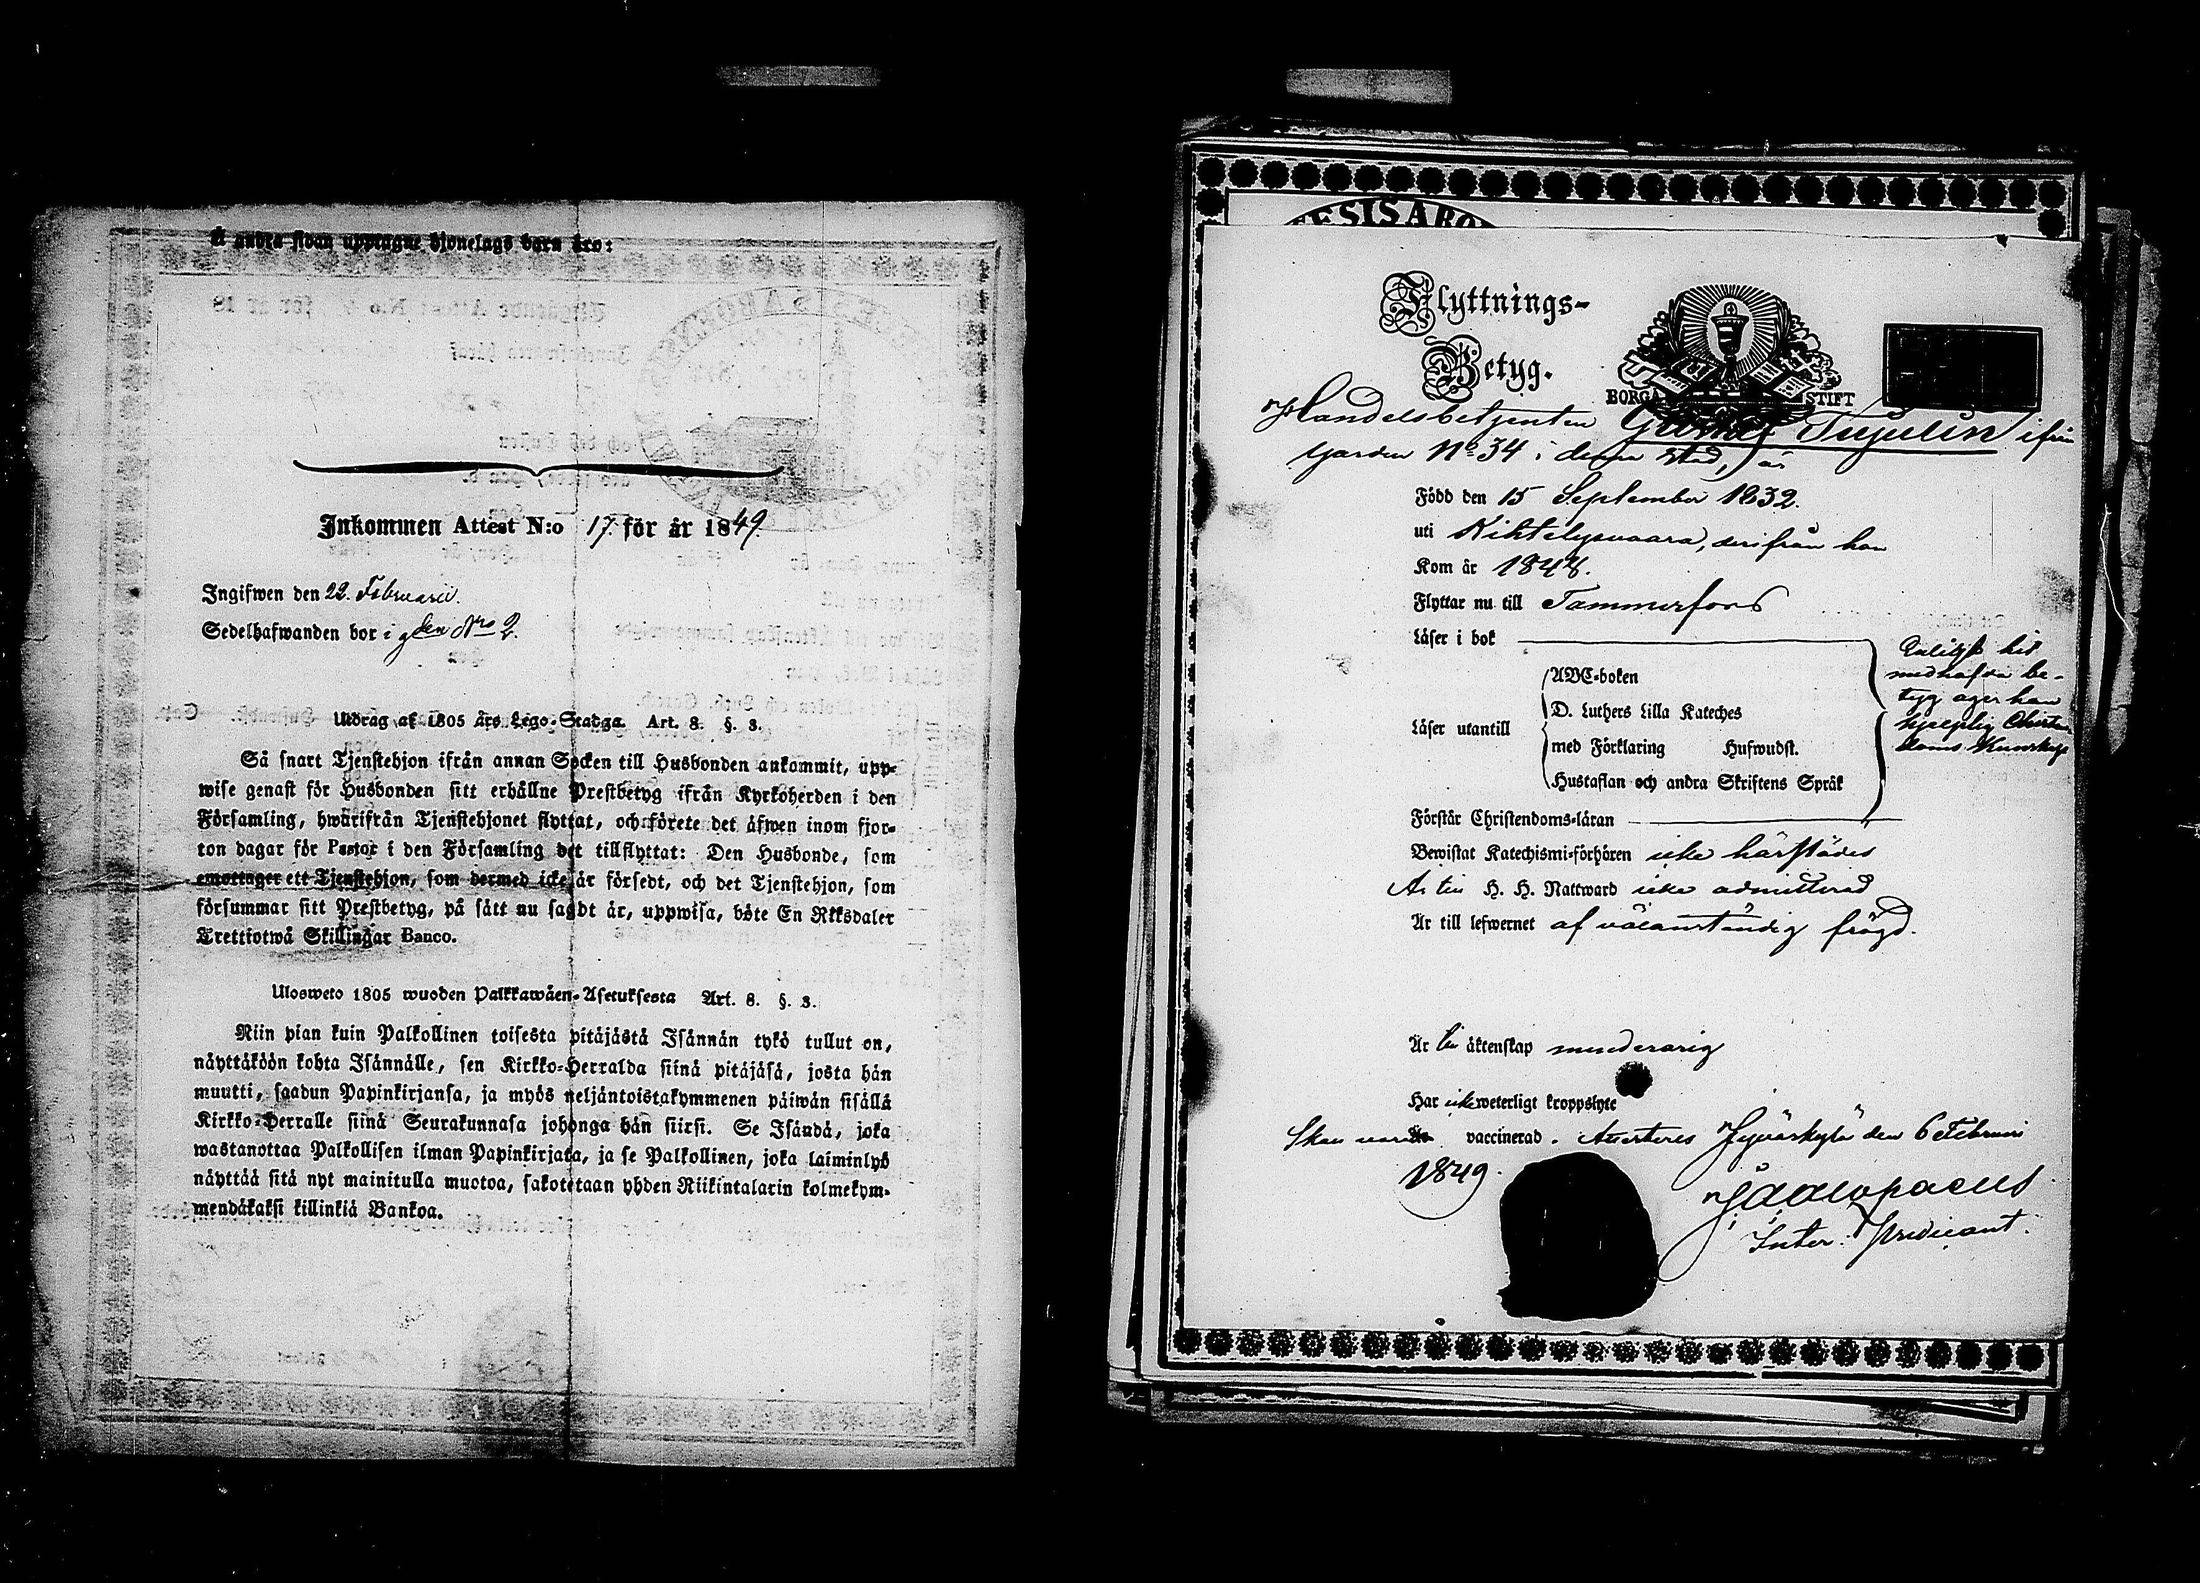 Å andra sidan upptagne hjonelags barn äro:
Inkommen Attest N:o 17. för år 1849.
Ingifwen den 22. Februarii.
Sedelhafwanden bor i gden Nro 2.
Utdrag af 1805 års Lego-Stadga Art. 8. §. 3.
Så snart Tjenstehjon ifrån annan Socken till Husbonden ankommit, upp-
wise genast för Husbonden sitt erhållne Prestbetyg ifrån Kyrkoherden i den
Församling, hwarifrån Tjenstehjonet flyttat, och förete det äfwen inom fjor-
ton dagar för Pastor i den Församling det tillflyttat: Den Husbonde, som
emottager ett Tjenstehjon, som dermed icke är försedt, och det Tjenstehjon, som
försummar sitt Prestbetyg, på sätt nu sagdt är, uppwisa, böte En Riksdaler
Trettiotwå Skillingar Banco.
Ulosweto 1805 wuoden Palkkawäen-Asetuksesta Art. 8. §. 3.
Niin pian kuin Palkollinen toisesta pitäjästä Isännän tykö tullut on,
näyttäköön kohta Isännälle, sen Kirkko-Herralda siinä pitäjäsä, josta hän
muutti, saadun Papinkirjansa, ja myös neljäntoistakymmenen päiwän sisällä
Kirkko-Herralle siinä Seurakunnasa johonga hän siirsi. Se Isändä, joka
wastanottaa Palkollisen ilman Papinkirjata, ja se Palkollinen, joka laiminlyö
näyttää sitä nyt mainitulla muotoa, sakotetaan yhden Riikintalarin kolmekym-
mendäkaksi killinkiä Bankoa.
ESISABO
Flyttnings-
Betyg.
BORGÅ STIFT
Handelsbetjenten Gustaf Tujulin ifrån
gården No 34 i denna stad, är
Född den 15 September 1832.
uti Kihtelysvaara, derifrån han
Kom år 1848.
Flyttar nu till Tammerfors
Läser i bok
Läser utantill
ABC-boken
D. Luthers Lilla Kateches
med Förklaring Hufwudst.
Hustaflan och andra Skriftens Språk
Enligt hit
medhafda be-
tyg äger han
hjelplig Christen-
doms kunskap
Förstår Christendoms-läran
Bewistat Katechismi-förhören icke härstädes
Är till H. H. Nattward icke admitterad
Är till lefwernet af välanständig frägd.
Är till äktenskap minderårig
Har icke weterligt kroppslyte
Skall vara vaccinerad. Attesteras Jyväskylä den 6 Februari
1849.